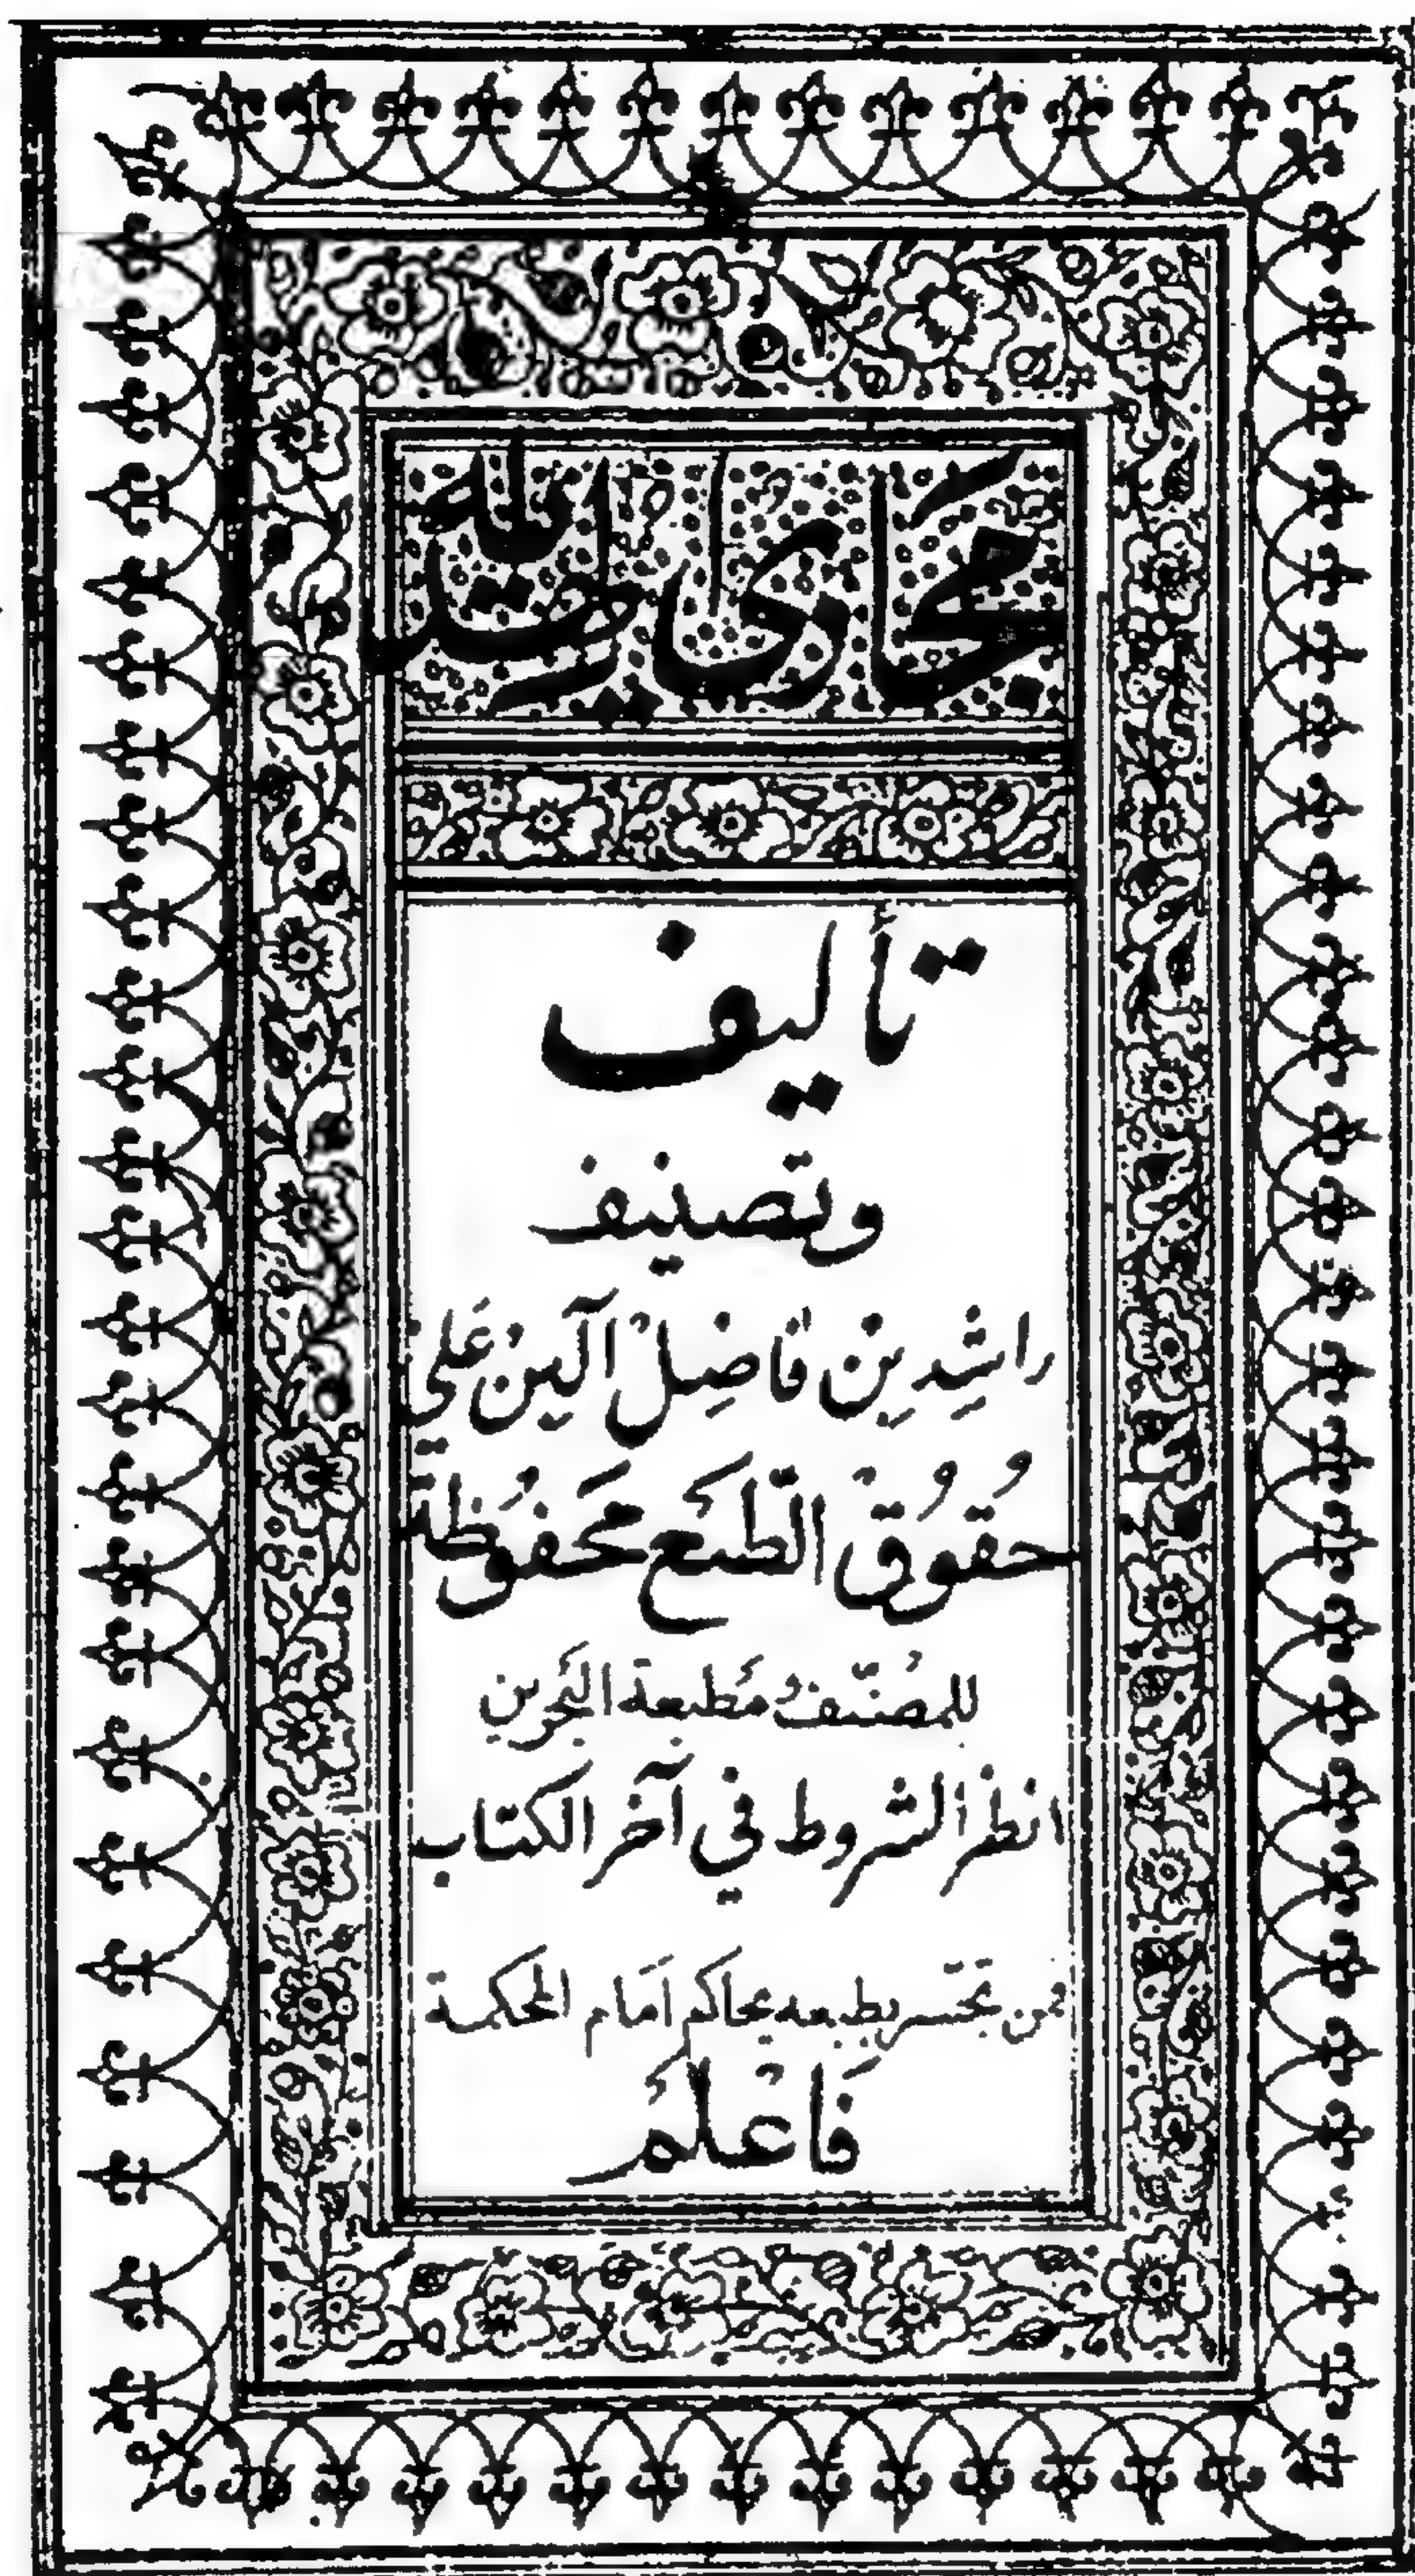 مجاري الهداية
تأليف
وتصنيف
راشِد بِن فاضِل آل بِنْ عَلي
حُقُوُقْ الطَّبَع مَحَفوُظة
للمصُنّفْ مَطبعة البَحرين
انظر الشروط في آخر الكتاب
فمن تجَسّر بطبعه يحاكم اَمَام المحكمة
فَاعْلَمُ